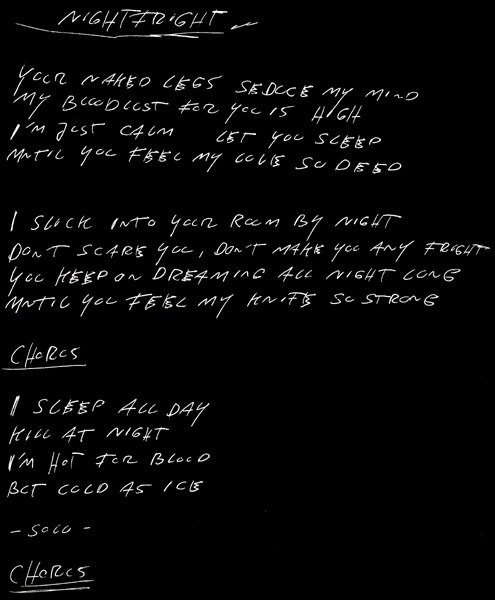 NIGHTFRIGHT
YOUR NAKED LEGS SEDUCE MY MIND
MY BLOODLUST FOR YOU IS HIGH
I'M JUST CALM LET YOU SLEEP
UNTIL YOU FEEL MY LOVE SO DEED
I SLUCK INTO YOUR ROOM BY NIGHT
DON'T SCARE YOU, DON'T MAKE YOU ANY FRIGHT
YOU KEEP ON DREAMING ALL NIGHT LONG
UNTIL YOU FEEL MY KNIFE SO STRONG
CHORUS
I SLEEP ALL DAY
KILL AT NIGHT
I'M HOT FOR BLOOD
BUT COLD AS ICE
- SOLO -
CHORUS